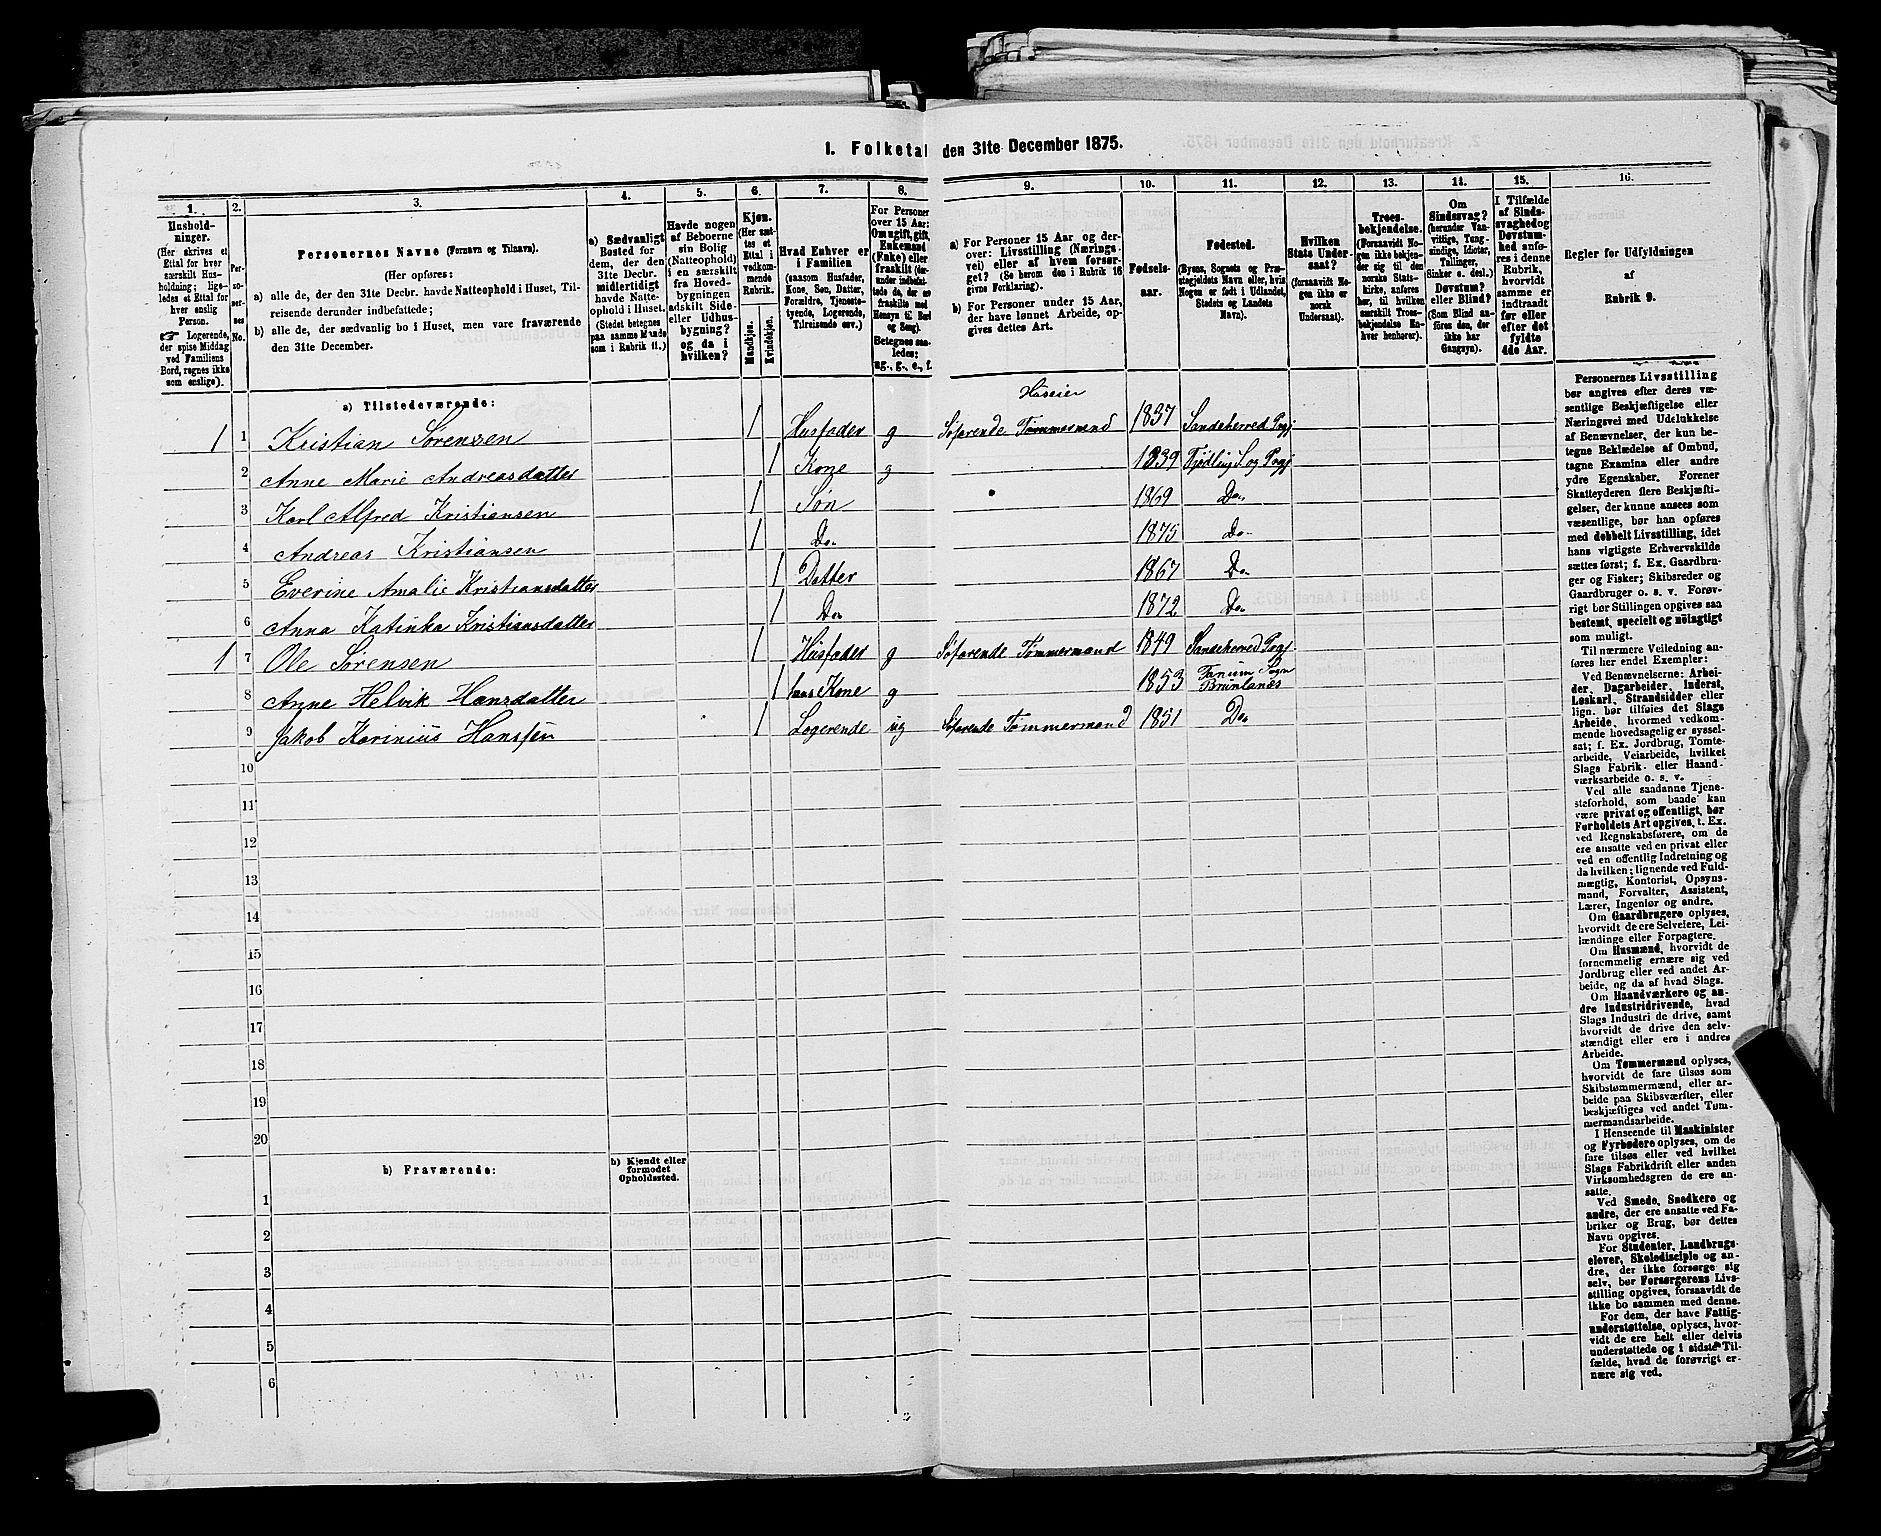 I. Folketal den 31te December 1875.
1. 2. 3. 4. 5. 6. 7. 8. 9. 10. 11. 12. 13. 14. 15. 16.
Husholdninger.
(Her skrives et
Ettal for hver
særskilt Husholdning; ligeledes
et Ettal for
hver enslig
Person.
Logerende,
der spise Middag
ved Familiens
Bord, regnes ikke
som enslige).
Personernes No.
Personernes Navne (Fornavn og Tilnavn).
(Her opføres:
a) alle de, der den 31te Decbr. havde Natteophold i Huset, Tilreisende derunder indbefattede;
b) alle de, der sædvanlig bo i Huset, men vare fraværende
den 31te December.
a) Sædvanligt
Bosted for
dem, der den
31te Decbr.
midlertidigt
havde Natteophold i Huset.
(Stedet betegnes
paa samme Maade
som i Rubrik 11.)
Havde nogen
af Beboerne
sin Bolig
(Natteophold)
i en særskilt
fra Hovedbygningen
adskilt Side-
eller Udhusbygning?
og da i
hvilken?
Kjøn.
(Her sættes et
Ettal i
vedkommende
Rubrik.
Mandkjøn.
Kvindekjøn.
Hvad Enhver er
i Familien
(saasom Husfader,
Kone, Søn, Datter,
Forældre, Tjenestetyende, Logerende,
Tilreisende osv.)
For Personer
over 15 Aar:
Om ugift, gift,
Enkemand
(Enke) eller
fraskilt
Betegnes saaledes:
ug., g., e., f.
a) For Personer 15 Aar og derover: Livsstilling (Næringsvei) eller af hvem forsørget? (Se herom den i Rubrik 16
givne Forklaring).
b) For Personer under 15 Aar,
der have lønnet Arbeide, opgives dettes Art.
Fødselsaar.
Fødested.
(Byens, Sognets og Præstegjeldets Navn eller, hvis
Nogen er født i Udlandet,
Stedets og Landets
Navn).
Hvilken
Stats Undersaat?
(forsaavidt Nogen ikke er
norsk
Undersaat).
Troesbekjendelse.
(Forsaavidt Nogen ikke bekjender sig til den
norske Statskirke, anføres
her, til hvilken
særskilt Troesbekjendelse Enhver henhører).
Om
Sindssvag?
(herunder Vanvittige, Tungsindige, Idioter,
Tullinger,
Sinker o. desl.)
Døvstum?
eller Blind?
(Som Blind anføres den, der
ikke har
Gangsyn).
I Tilfælde
af Sindssvaghed og
Døvstumhed anføres i denne
Rubrik,
hvorvidt
samme er
indtraadt
før eller
efter det
fyldte
4de Aar.
Regler for Udfyldningen
af
Rubrik 9.
a) Tilstedeværende:
Huseier
1 1 Kristian Sørensen 1 Husfader g Søfarende Tømmermand 1837 Sandeherred Pgj
2 Anne Marie Andreasdatter 1 Kone g 1839 Tjødling S. og Pgj
3 Karl Alfred Kristiansen 1 Søn 1869 Do
4 Andreas Kristiansen 1 Do 1875 Do
5 Everine Amalie Kristiansdatter 1 Datter 1867 Do
6 Anna Katinka Kristiansdatter 1 Do 1872 Do
1 7 Ole Sørensen 1 Husfader g Søfarende Tømmermand 1849 Sandeherred Pgj
8 Anne Helvik Hansdatter 1 hans Kone g 1853 Tanum Sogn Brunlanæs
9 Jakob Karinius Hanssen 1 Logerende ug Søfarende Tømmermand 1851 Do
10
11
12
13
14
15
16
17
18
19
20
b) Fraværende:
b) Kjendt eller
formodet
Opholdssted.
1
2
3
4
5
6
Personernes Livsstilling
bør angives efter deres væsentlige Beskjæftigelse eller
Næringsvei med Udelukkelse
af Benævnelser, der kun betegne Beklædelse af Ombud,
tagne Examina eller andre
ydre Egenskaber. Forener
Skatteyderen flere Beskjæftigelser, der kunne ansees som
væsentlige, bør han opføres
med dobbelt Livsstilling, idet
hans vigtigste Erhvervskilde
sættes først; f. Ex. Gaardbruger og Fisker; Skibsreder og
Gaardbruger o. s. v. Forøvrigt bør Stillingen opgives saa
bestemt, specielt og nøiagtigt
som muligt.
Til nærmere Veiledning anføres her endel Exempler:
Ved Benævnelserne: Arbeider, Dagarbeider, Inderst,
Løskarl, Strandsidder eller
lign. bør tilføies det Slags
Arbeide, hvormed vedkommende hovedsagelig er sysselsat; f. Ex. Jordbrug, Tomtearbeide, Veiarbeide, hvilket
Slags Fabrik- eller Haandværksarbeide o. s. v.
Ved alle saadanne Tjenesteforhold, som baade kan
være privat og offentligt, bør
Forholdets Art opgives, t. Ex.
ved Regnskabsførere, om de
ere ansatte ved en privat eller
ved en offentlig Indretning og
da hvilken; lignende ved Fuldmægtig, Kontorist, Opsynsmand, Forvalter, Assistent,
Lærer, Ingeniør og andre.
Om Gaardbrugere oplyses,
hvorvidt de ere Selveiere, Leilændinge eller Forpagtere.
Om Husmænd, hvorvidt de
fornemmelig ernære sig ved
Jordbrug eller ved andet Arbeide, og da af hvad Slags.
Om Haandværkere og andre Industridrivende, hvad
Slags Industri de drive, samt
hvorvidt de drive den selvstændigt eller ere i andres
Arbeide.
Om Tømmermænd oplyses,
hvorvidt de fare tilsøs som
Skibstømmermænd, eller arbeide paa Skibsværfter, eller
beskjæftiges ved andet Tømmermandsarbeide.
I Henseende til Maskinister
og Fyrbødere oplyses, om de
fare tilsøs eller ved hvilket
Slags Fabrikdrift eller anden
Virksomhedsgren de ere ansatte.
Ved Smede, Snedkere og
andre, der ere ansatte ved Fabriker og Brug, bør dettes
Navn opgives.
For Studenter, Landbrugselever, Skoledisciple og andre, der ikke forsørge sig
selv, bør Forsørgerens Livsstilling opgives, forsaavidt de
ikke bo sammen med denne.
For dem, der have Fattigunderstøttelse, oplyses, hvorvidt de ere helt eller delvis
understøttede og i sidste Tilfælde, hvad de forøvrigt ernære sig ved.